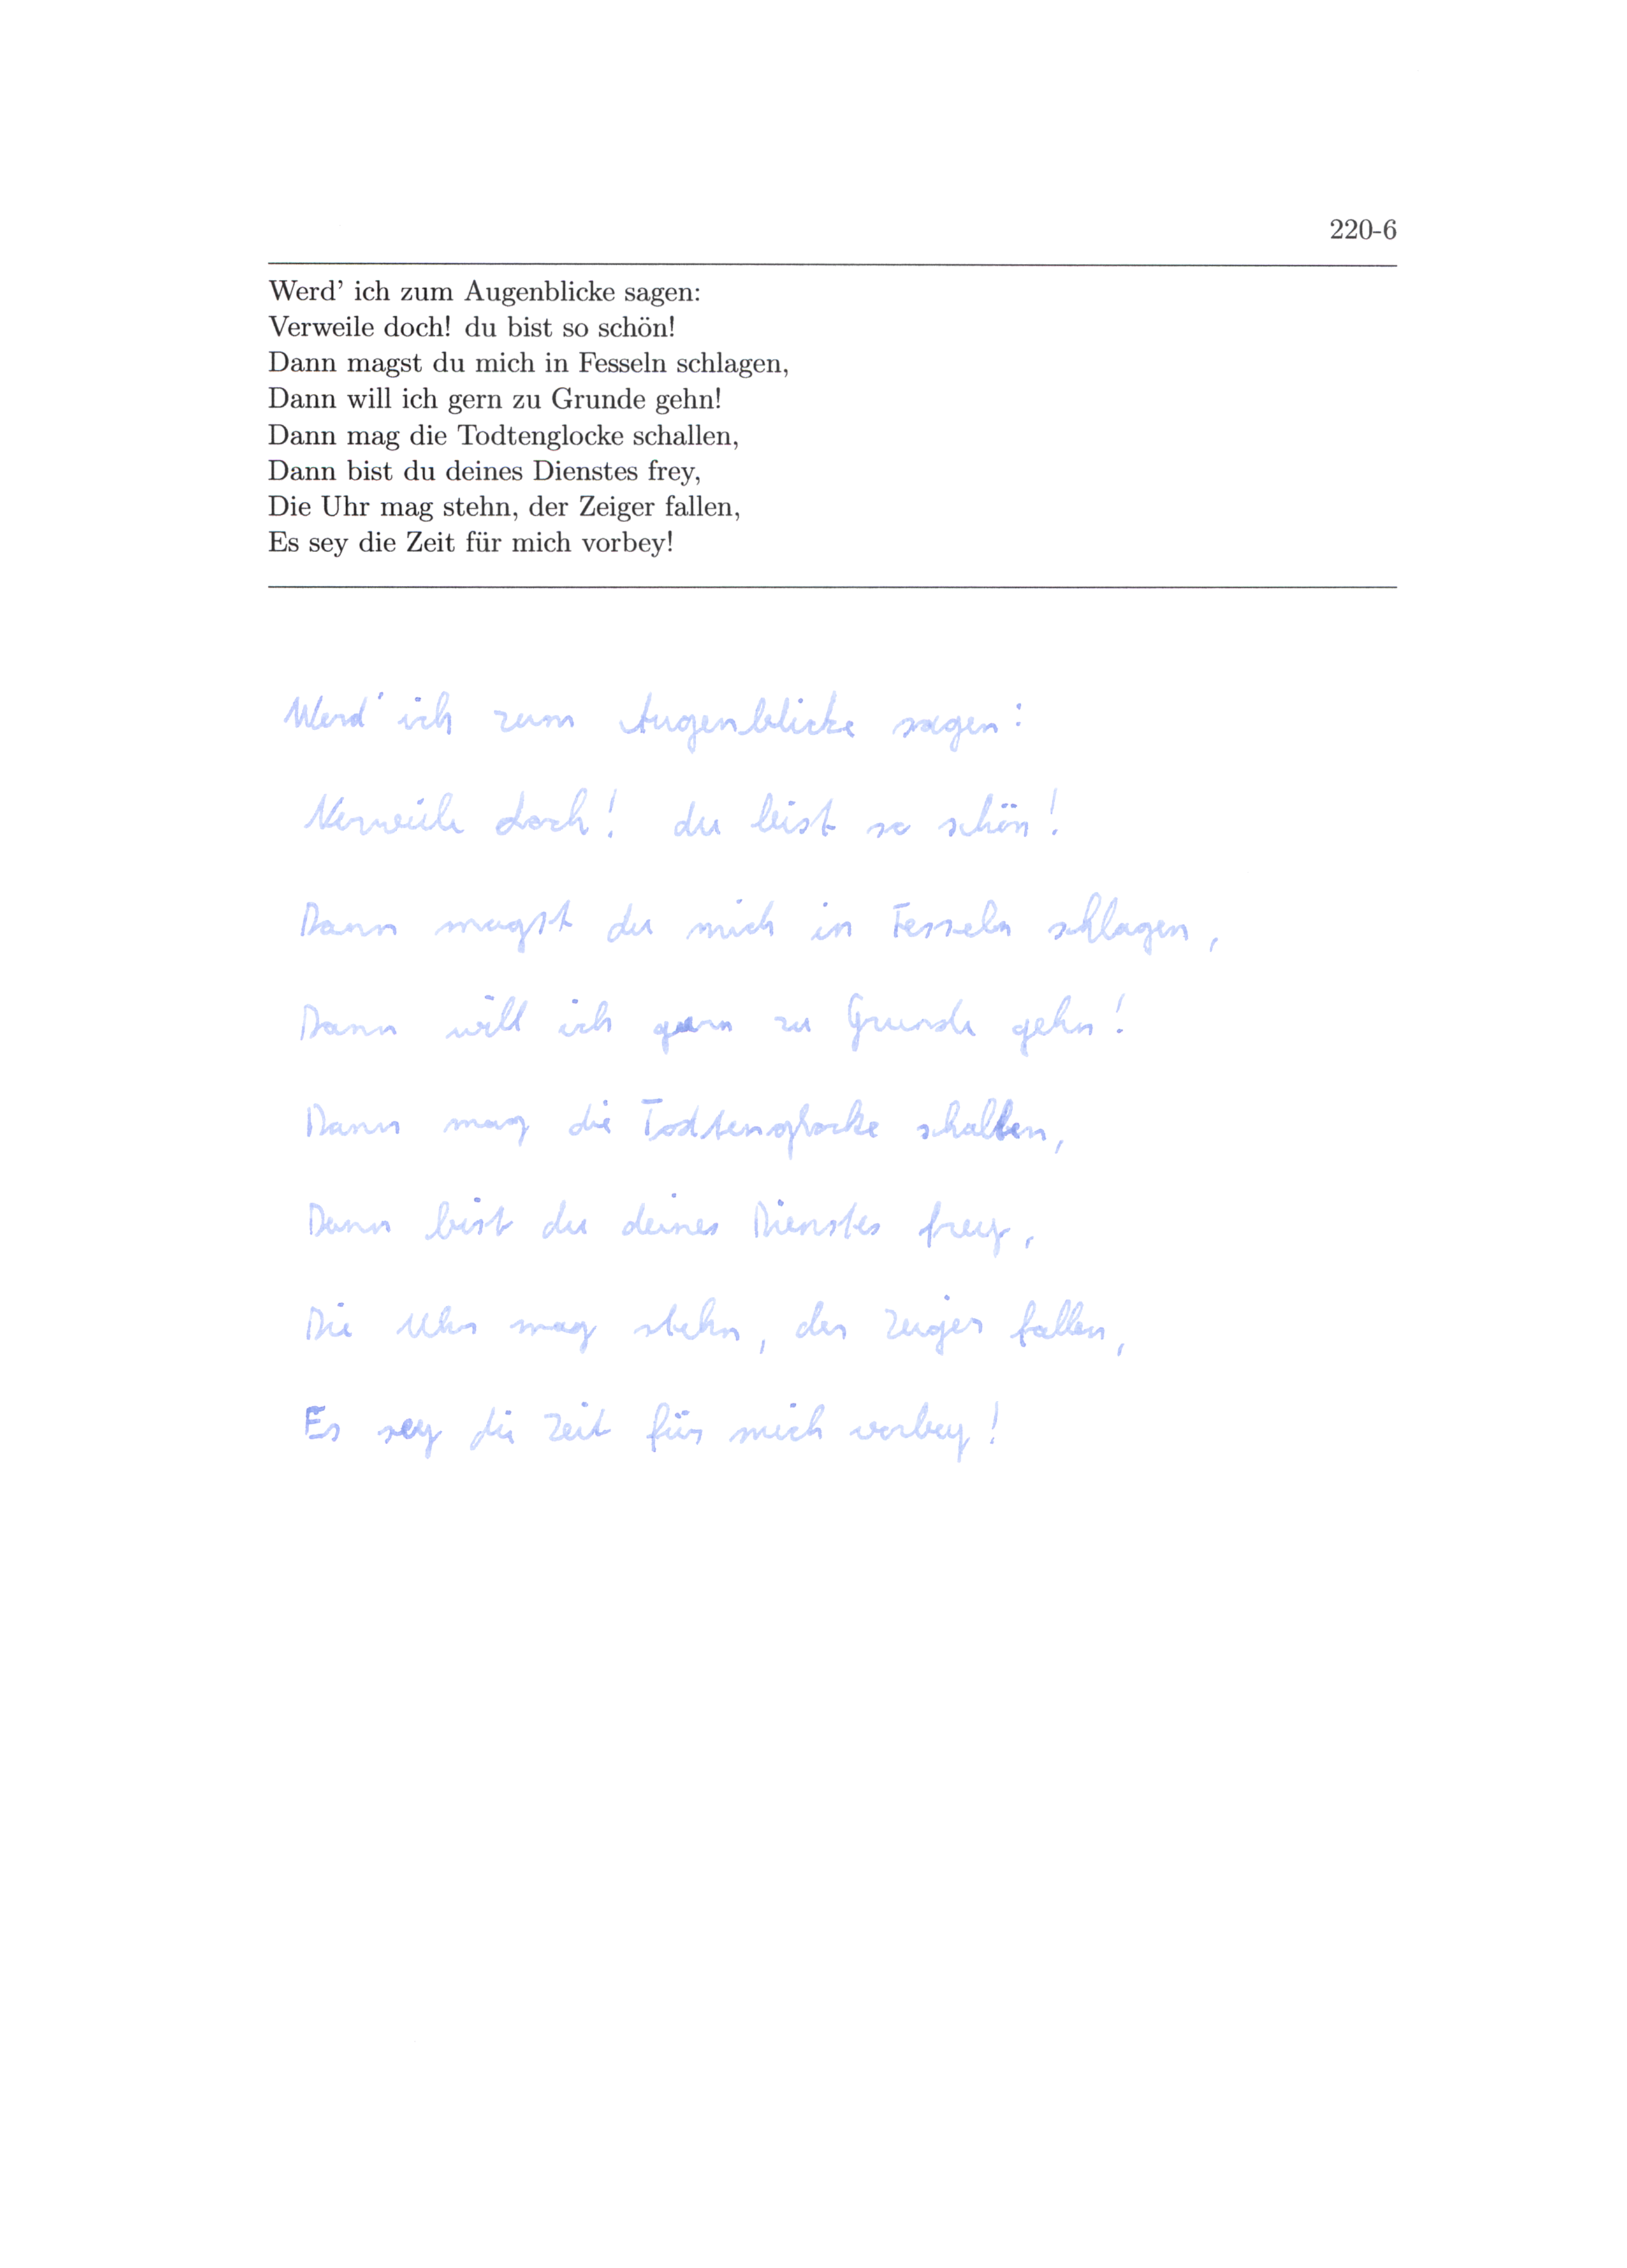 220-6
Werd' ich zum Augenblicke sagen:
Verweile doch! du bist so schön!
Dann magst du mich in Fesseln schlagen,
Dann will ich gern zu Grunde gehn!
Dann mag die Todtenglocke schallen,
Dann bist du deines Dienstes frey,
Die Uhr mag stehn, der Zeiger fallen,
Es sey die Zeit für mich vorbey!
Werd' ich zum Augenblicke sagen:
Verweile doch! du bist so schön!
Dann magst du mich in Fesseln schlagen,
Dann will ich gern zu Grunde gehn!
Dann mag die Todtenglocke schallen,
Dann bist du deines Dienstes frey,
Die Uhr mag stehn, der Zeiger fallen,
Es sey die Zeit für mich vorbey!